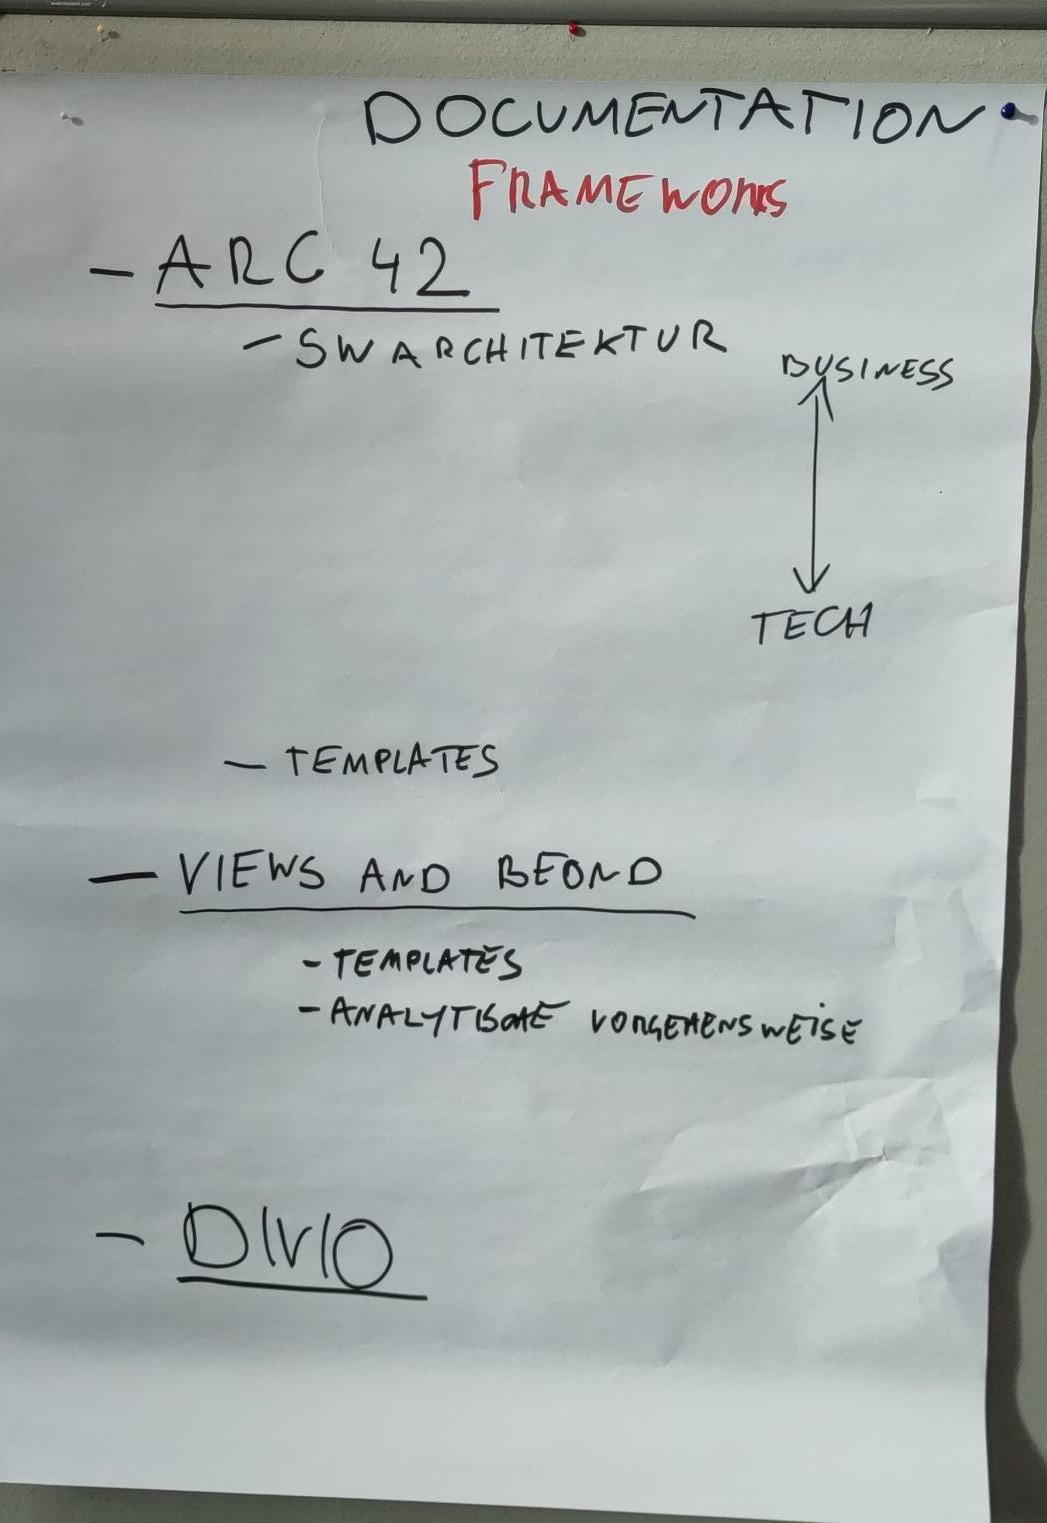 DOCUMENTATION
FRAMEWORKS
- ARC 42
- SW ARCHITEKTUR
BUSINESS
TECH
- TEMPLATES
- VIEWS AND BEOND
- TEMPLATES
- ANALYTISCHE VORGEHENSWEISE
- DIVIO